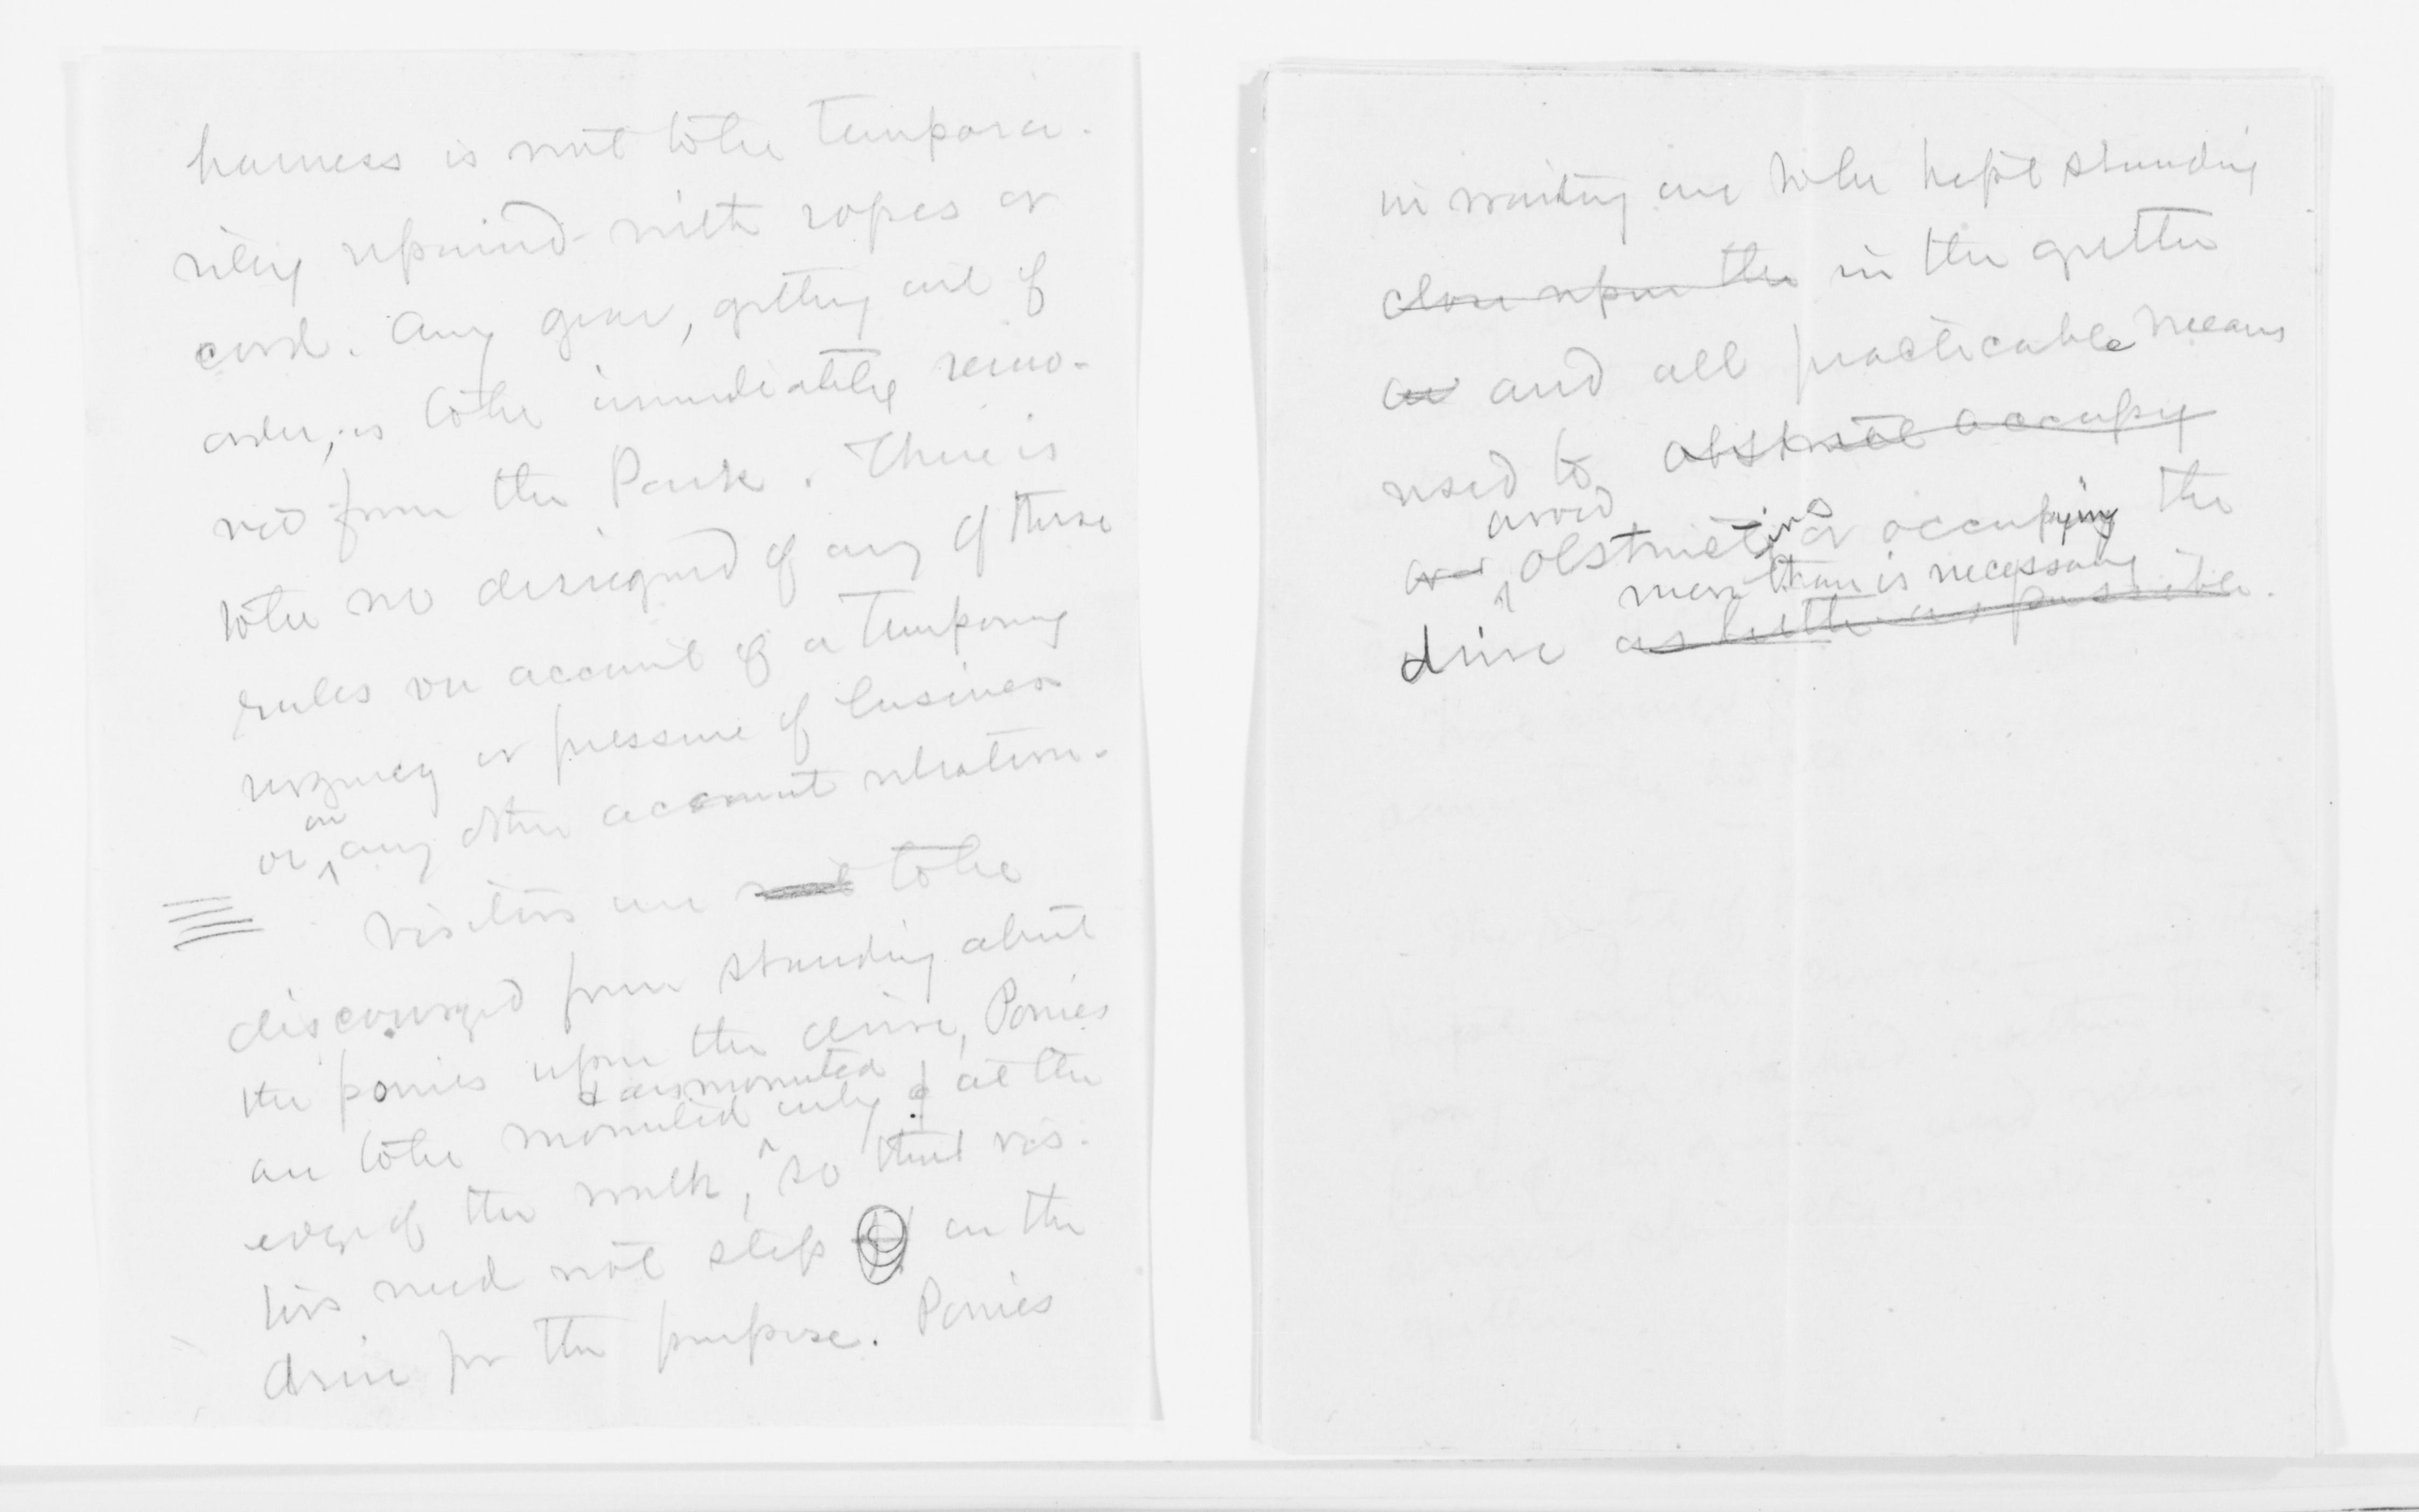 harness is not to be tempora-
rily repaired with ropes or
cord. Any gear, getting out of
order, is to be immediately remo-
ved from the Park. There is
to be no disregard of any of these
rules on account of a temporary
urgency or pressure of business
on
or any other account whatever.
Visitors are not to be
discouraged from standing about
the ponies upon the drive, Ponies
& dismounted
are to be mounted only at the
edge of the walk, so that vis-
tors need not step on the
drive for the purpose. Ponies
in waiting are to be kept standing
close upon the in the gutter
and all practicable means
used to obstruct occupy
avoid
obstructing or occupying the
more than is necessary
drive as little as possible.